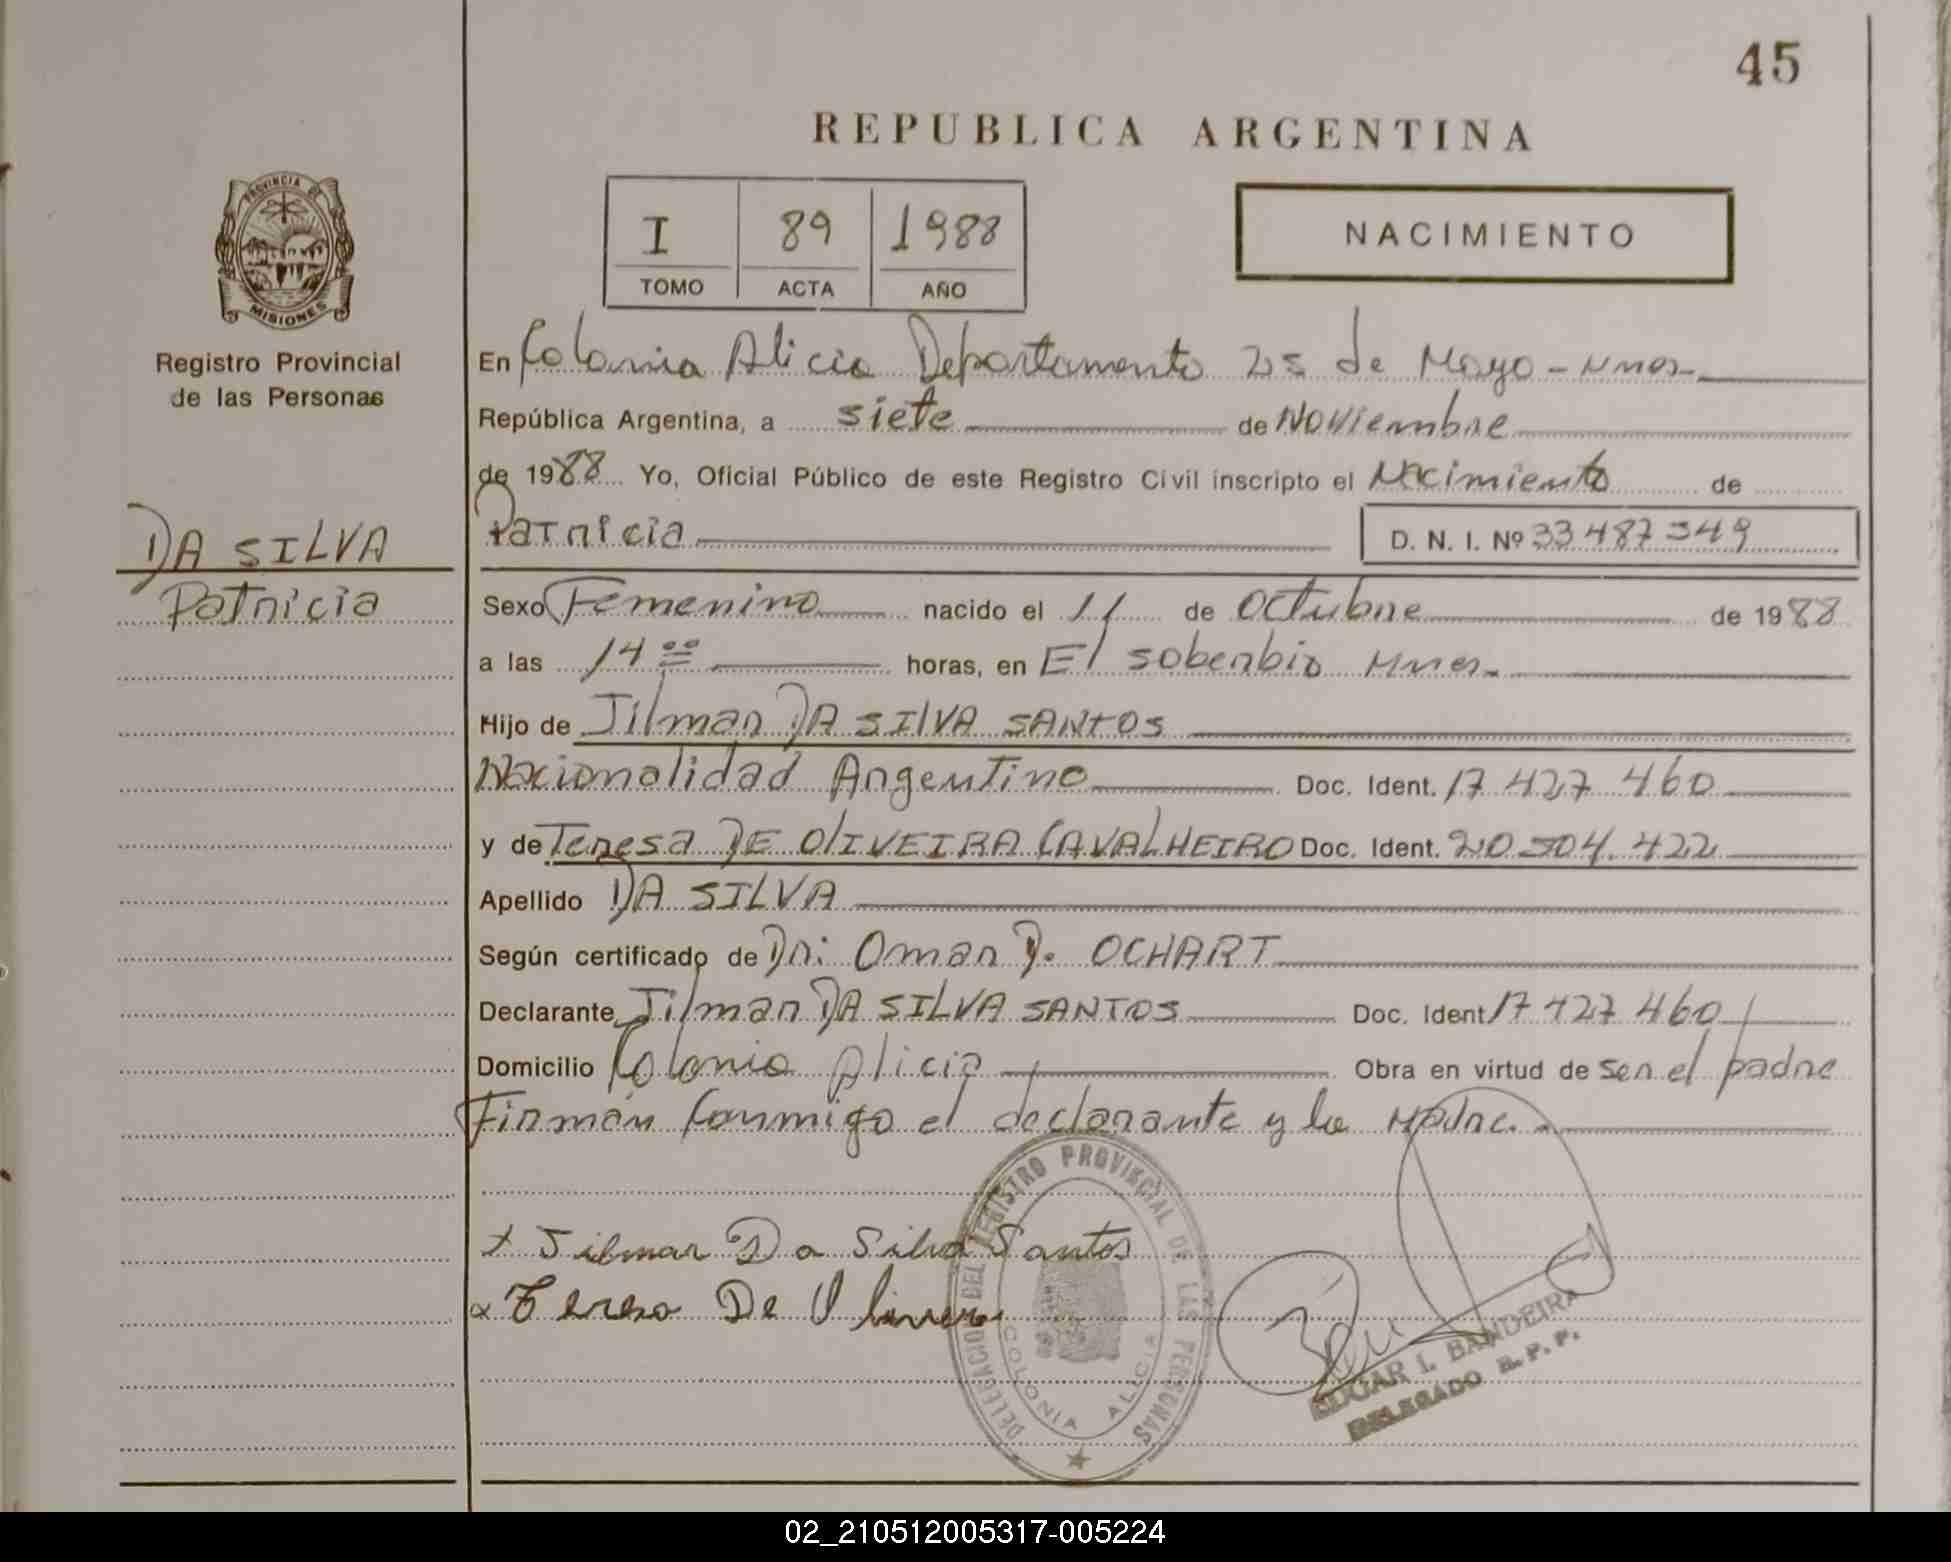 45
REPUBLICA ARGENTINA
PROVINCIA DE
MISIONES
Registro Provincial
de las Personas
I 89 1988
TOMO ACTA AÑO
NACIMIENTO
En Colonia Alicia Departamento 25 de Mayo - Mnes.
República Argentina, a siete de Noviembre
de 1988 Yo, Oficial Público de este Registro Civil inscripto el Nacimiento de
Patricia D. N. I. Nº 33 487 349
DA SILVA
Patricia
Sexo Femenino nacido el 11 de Octubre de 1988
a las 14 00 horas, en El soberbio Mnes.
Hijo de Jilmar DA SILVA SANTOS
Nacionalidad Argentino Doc. Ident. 17 427 460
y de Teresa DE OLIVEIRA CAVALHEIRO Doc. Ident. 20.504.422
Apellido DA SILVA
Según certificado de Dr: Omar D. OCHART
Declarante Jilmar DA SILVA SANTOS Doc. Ident 17 427 460
Domicilio Colonia Alicia Obra en virtud de ser el padre
Firman conmigo el declarante y la Madre.
x Jilmar Da Silva Santos
x Teresa De Oliveira
DELEGACIO DEL REGISTRO PROVINCIAL DE LAS PERSONAS
COLONIA ALICIA
EDGAR I. BANDEIRA
DELEGADO R. P. P.
02_210512005317-005224